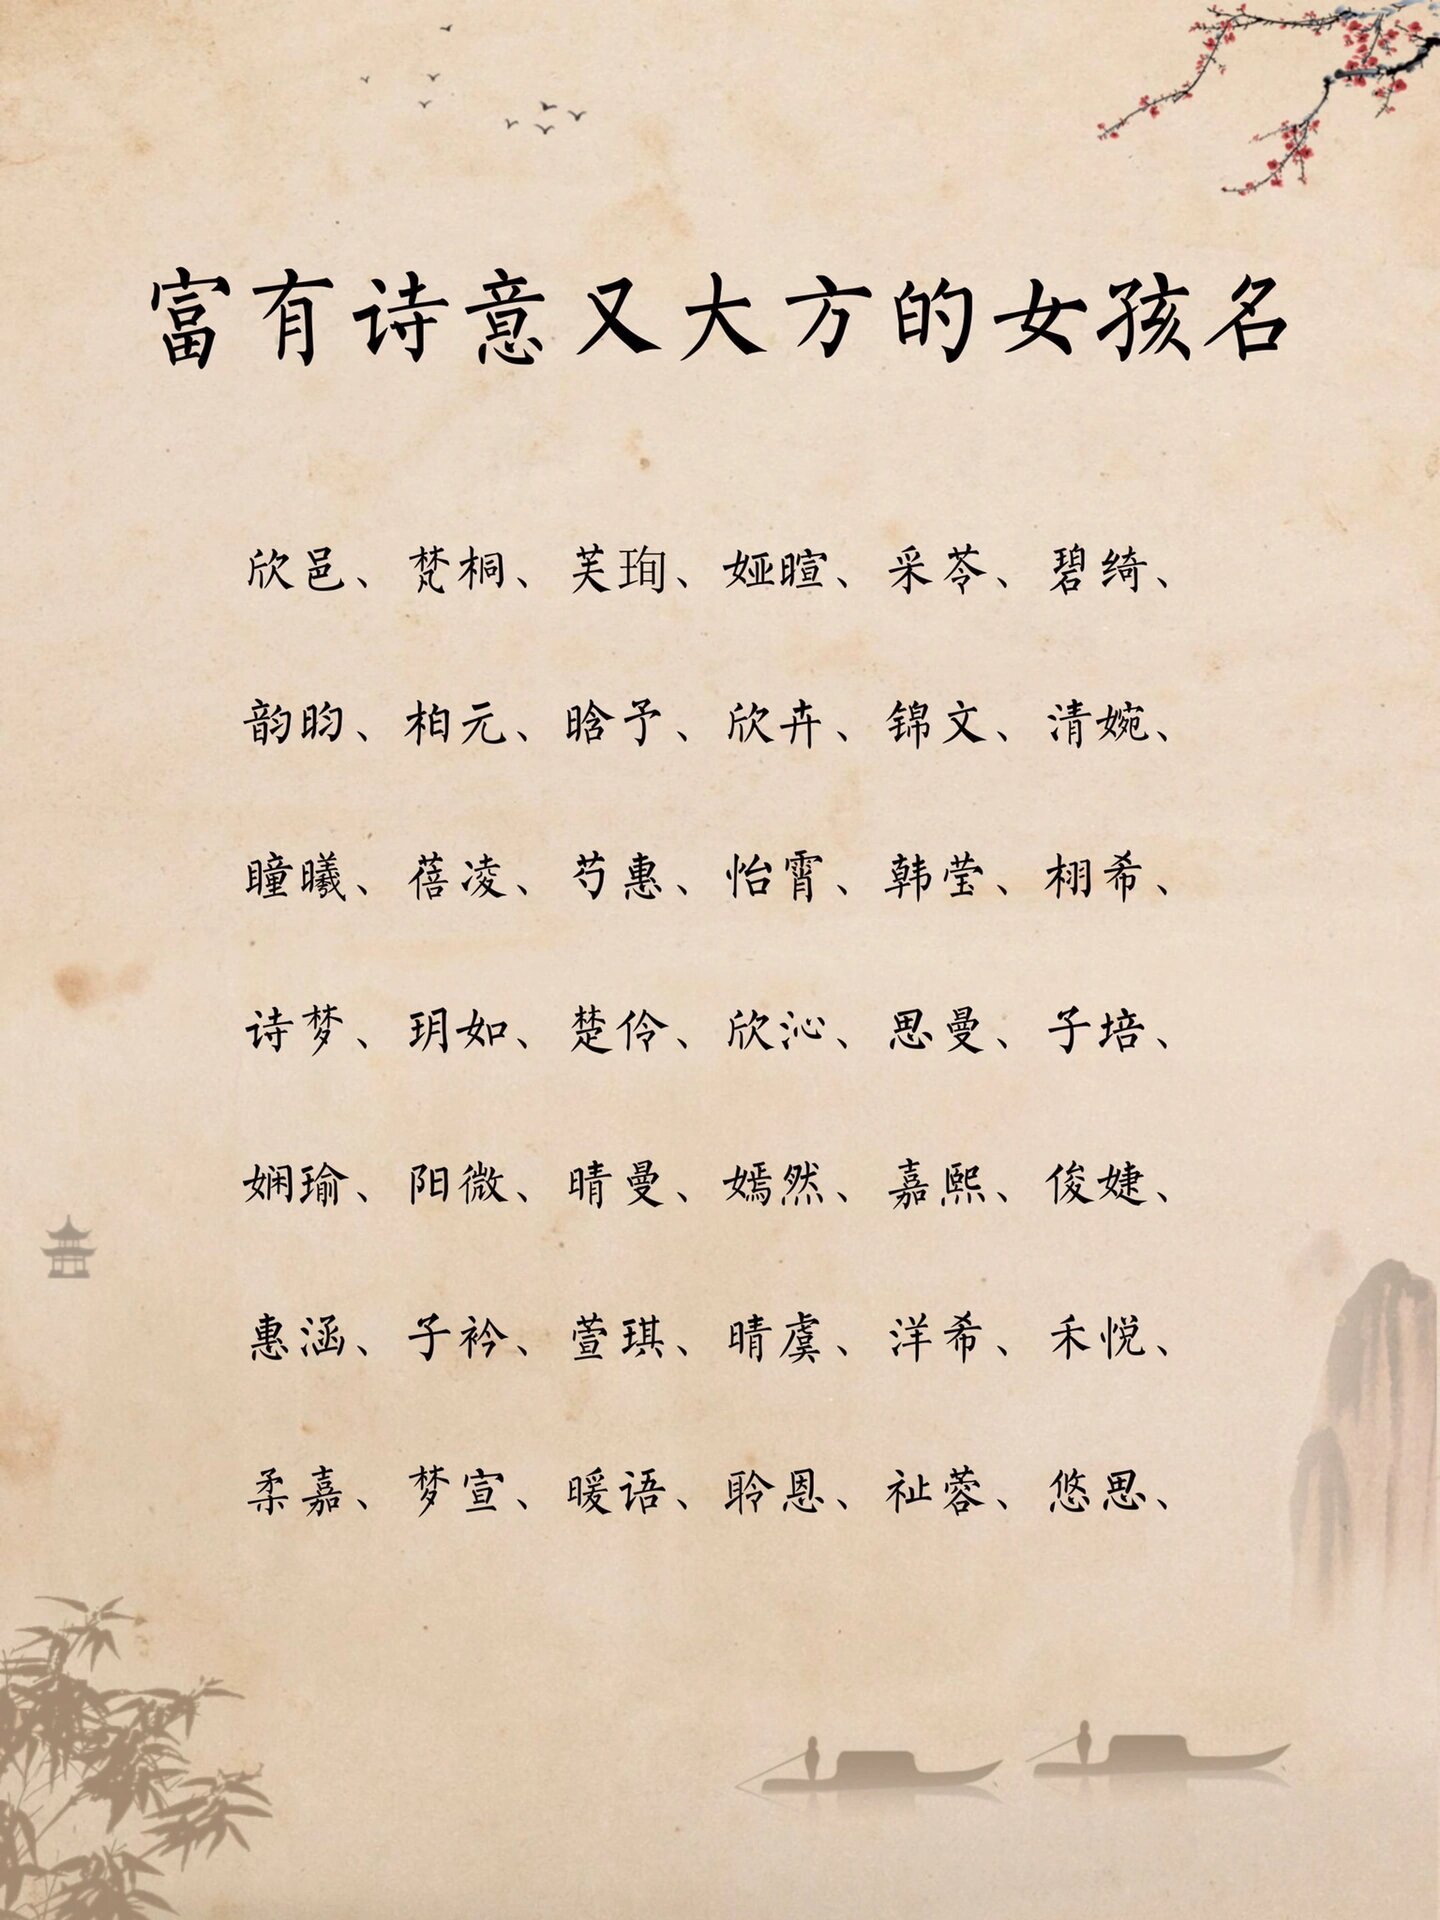 富有诗意又大方的女孩名
欣邑、梵桐、芙珣、娅暄、采苓、碧绮、
韵昀、柏元、晗予、欣卉、锦文、清婉、
曈曦、蓓凌、芍惠、怡霄、韩莹、栩希、
诗梦、玥如、楚伶、欣沁、思曼、子培、
娴瑜、阳微、晴曼、嫣然、嘉熙、俊婕、
惠涵、子衿、萱琪、晴虞、洋希、禾悦、
柔嘉、梦宣、暖语、聆恩、祉蓉、悠思、